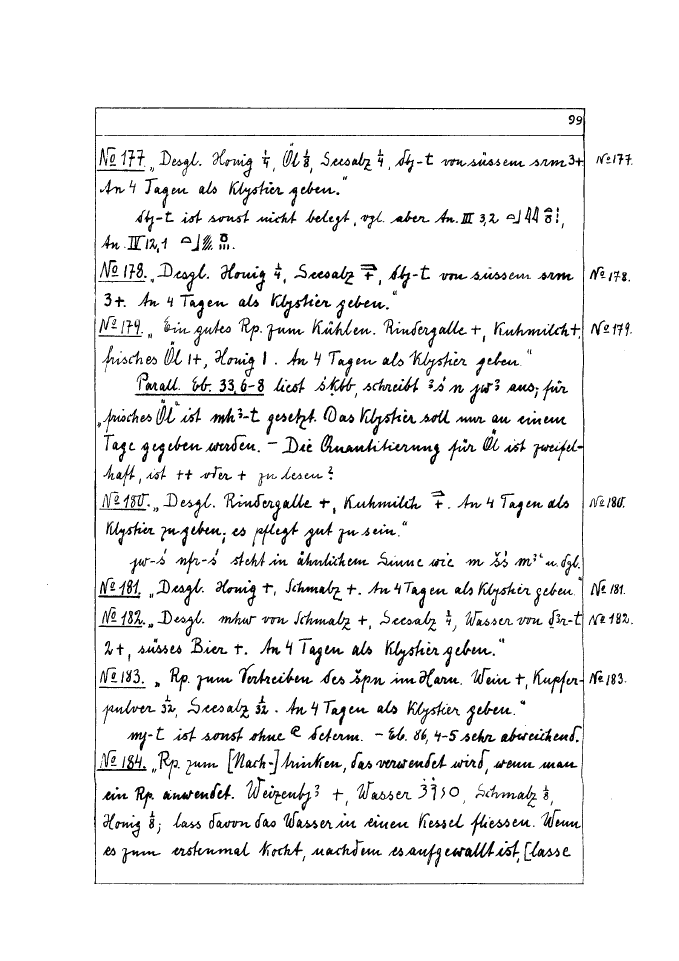 99
No 177. „Desgl. Honig 1/4, Öl 1/8, Seesalz 1/4, ḏbj-t von süssem srm 3+ No 177.
An 4 Tagen als Klystier geben."
ḏbj-t ist sonst nicht belegt, vgl. aber An. III 3,2
An. IV 12,1
No 178. „Desgl. Honig 1/4, Seesalz, ḏbj-t von süssem srm No 178.
3+. An 4 Tagen als Klystier geben."
No 179. „Ein gutes Rp. zum Kühlen. Rindergalle +, Kuhmilch +, No 179.
frisches Öl 1+, Honig 1. An 4 Tagen als Klystier geben."
Parall. Eb. 33,6-8 liest śḳbb, schreibt ꜣś n jwꜣ aus; für
„frisches Öl" ist mḥꜣ-t gesetzt. Das Klystier soll nur an einem
Tage gegeben werden. – Die Quantitierung für Öl ist zweifel-
haft, ist ++ oder + zu lesen?
No 180. „Desgl. Rindergalle +, Kuhmilch. An 4 Tagen als No 180.
Klystier zu geben; es pflegt gut zu sein."
jw-ś nfr-ś steht in ähnlichem Sinne wie m šś mꜣꜥ u. dgl.
No 181. „Desgl. Honig +, Schmalz +. An 4 Tagen als Klystier geben." No 181.
No 182. „Desgl. mhw von Schmalz +, Seesalz 1/4, Wasser von ḏꜣr-t No 182.
2+, süsses Bier +. An 4 Tagen als Klystier geben."
No 183. „Rp. zum Vertreiben des špn im Harn. Wein +, Kupfer- No 183.
pulver 1/32, Seesalz 1/32. An 4 Tagen als Klystier geben."
mj-t ist sonst ohne determ. – Eb. 86,4-5 sehr abweichend.
No 184. „Rp. zum [Nach-]trinken, das verwendet wird, wenn man
ein Rp. anwendet. +, Wasser, Schmalz 1/8,
Honig 1/8; lass davon das Wasser in einen Kessel fliessen. Wenn
es zum erstenmal kocht, nachdem es aufgewallt ist, [lasse